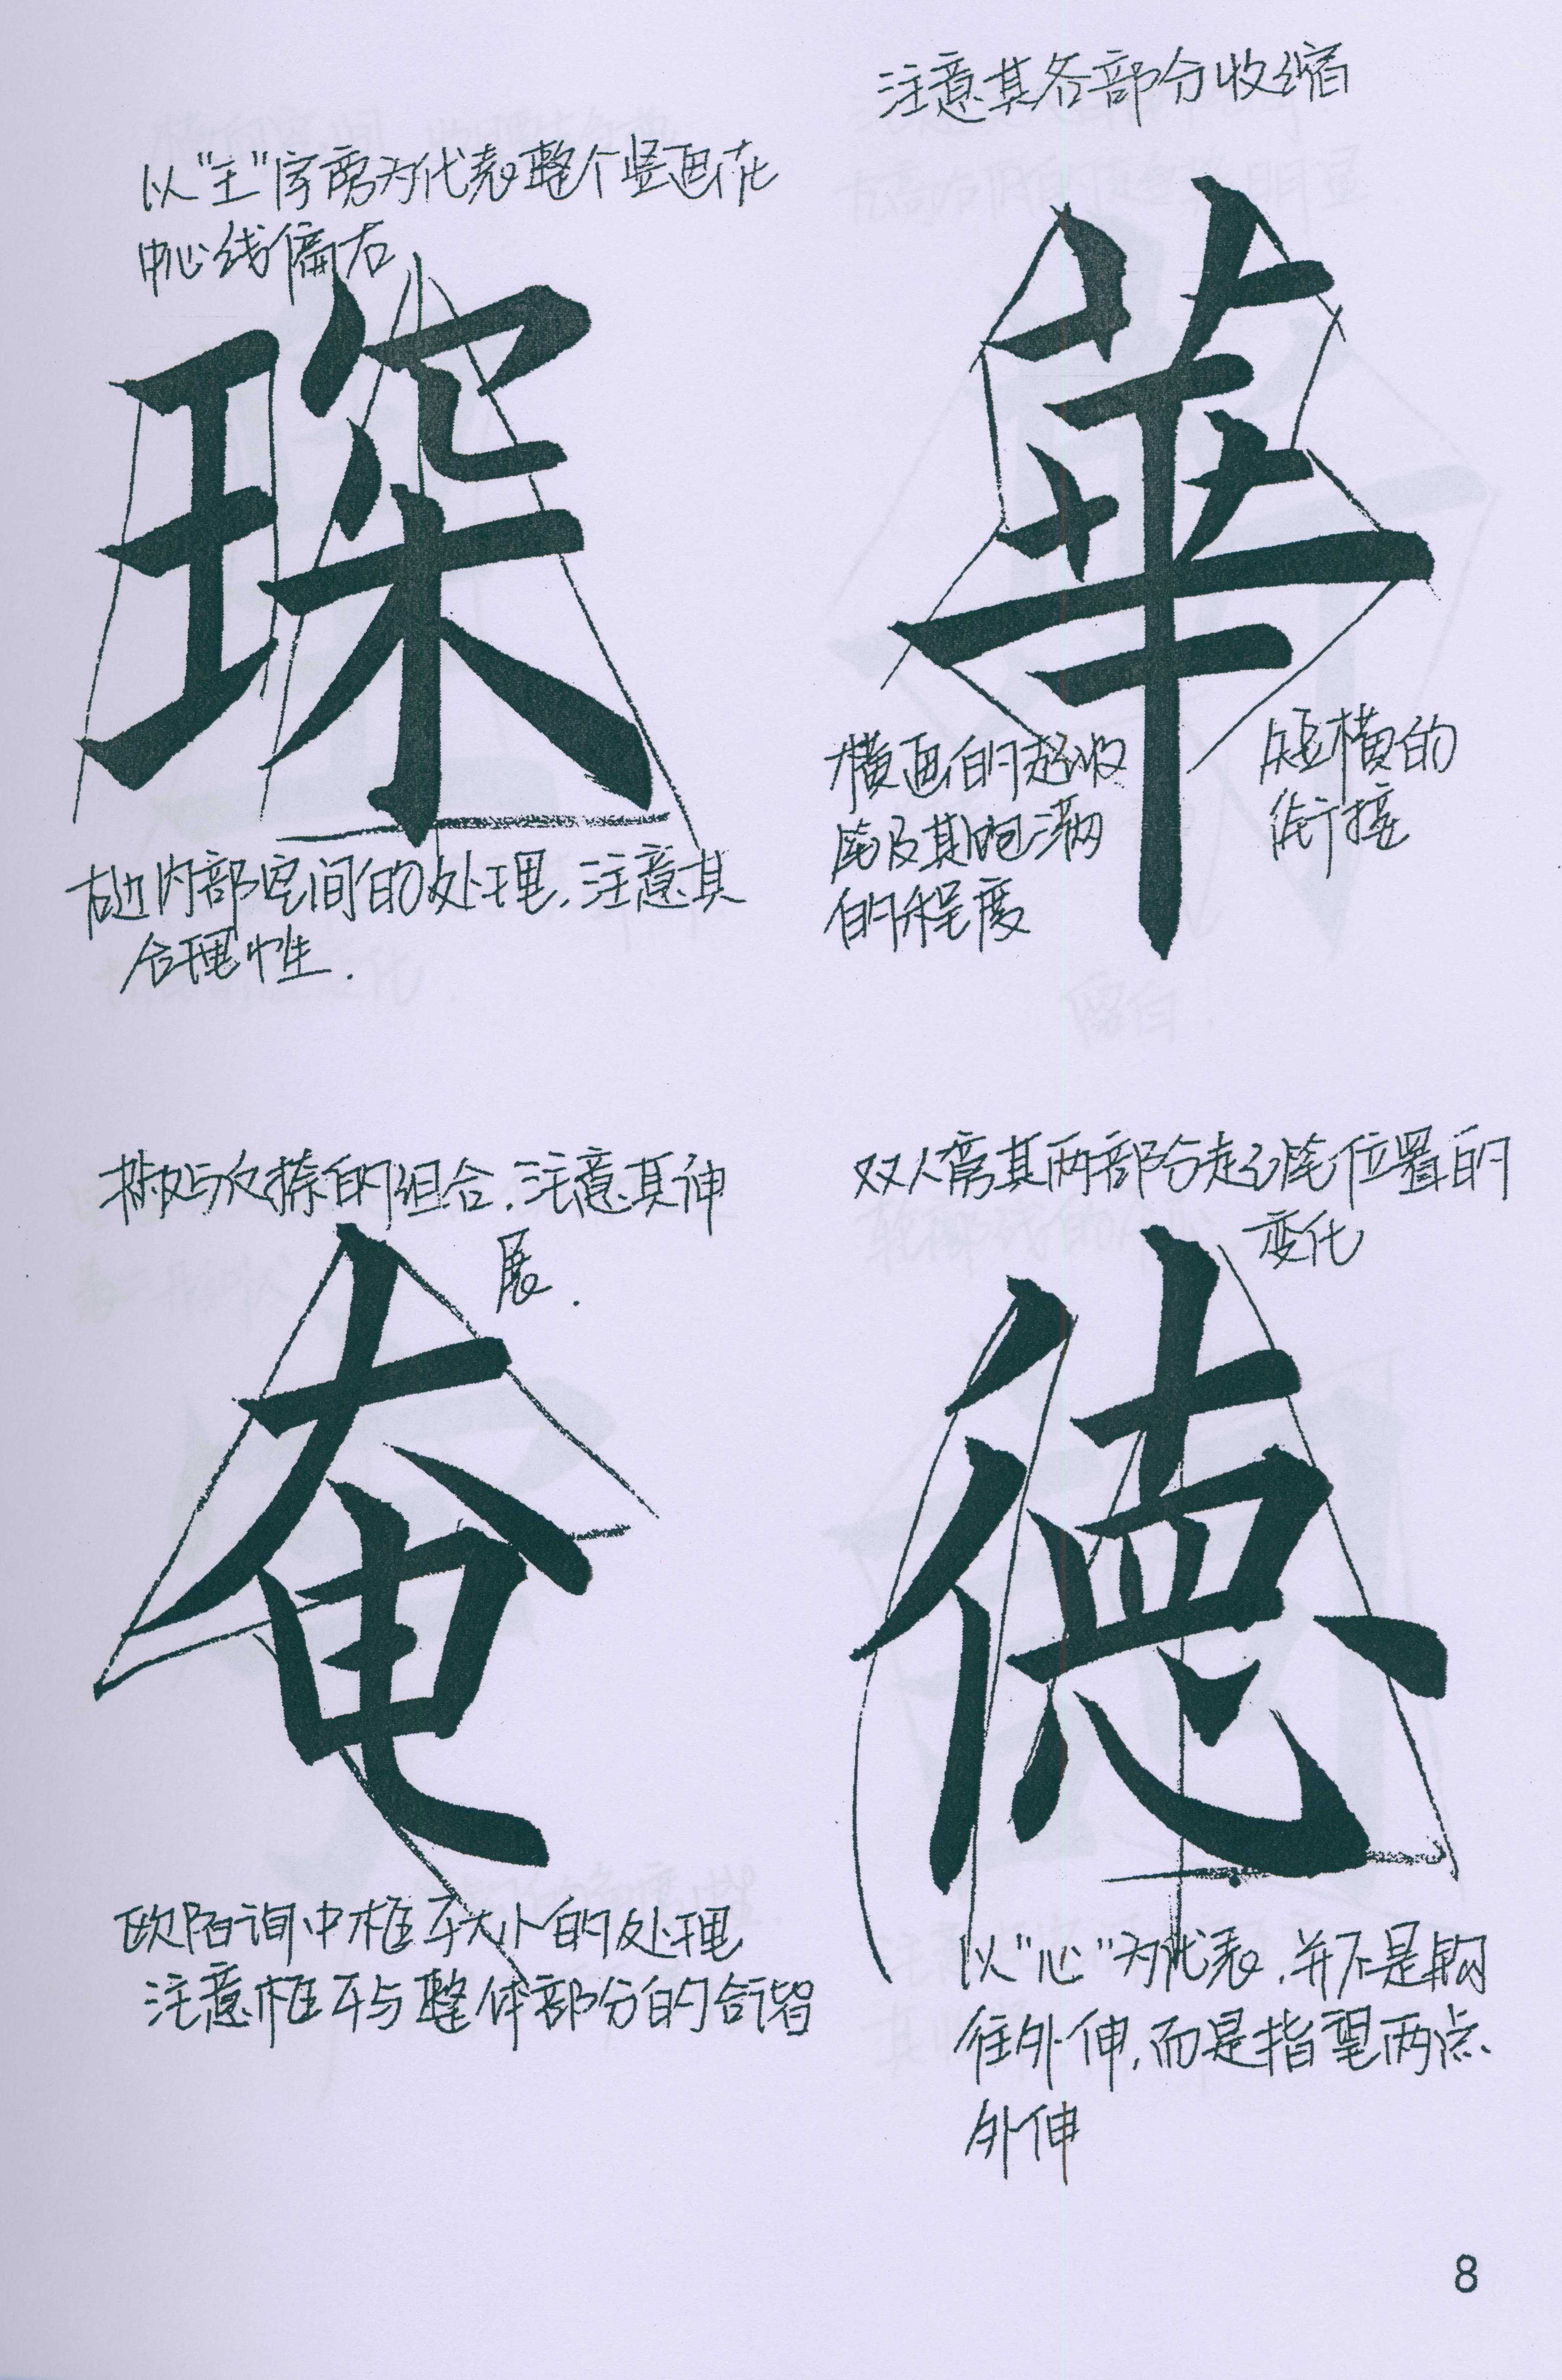 注意其各部分收缩
以“王”字旁为代表整个竖画在
中心线偏右
琛
華
横画的起收
尾及其饱满
的程度
短横的
衔接
右边内部空间的处理.注意其
合理性.
撇与反捺的组合.注意其伸
展.
双人旁其两部分起尾位置的
变化
奄
德
欧阳询中框子大小的处理
注意框子与整体部分的合谐
以“心”为代表.并不是钩
往外伸,而是指望两点
外伸
8